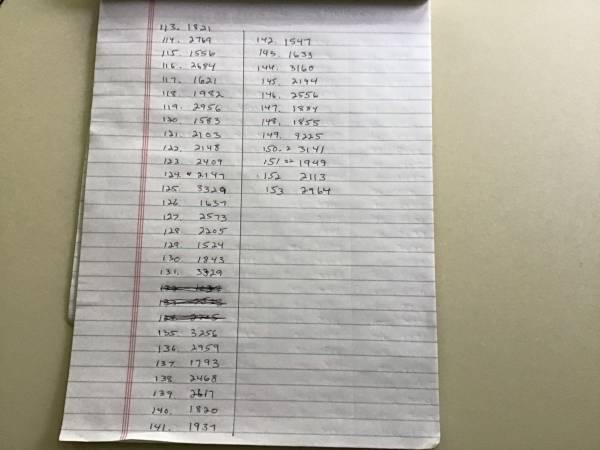 113. 1821
114. 2769
115. 1556
116. 2684
117. 1621
118. 1982
119. 2956
120 1583
121. 2103
122. 2148
123. 2409
124. 2147
125. 3329
126 1637
127. 2573
128 2205
129. 1524
130. 1843
131. 3329
135. 3256
136. 2959
137. 1793
138. 2468
139. 2617
140. 1820
141. 1937
142. 1547
143. 1633
144. 3160
145. 2194
146. 2556
147. 1834
148. 1855
149. 9225
150. 3141
151 1949
152 2113
153 2964